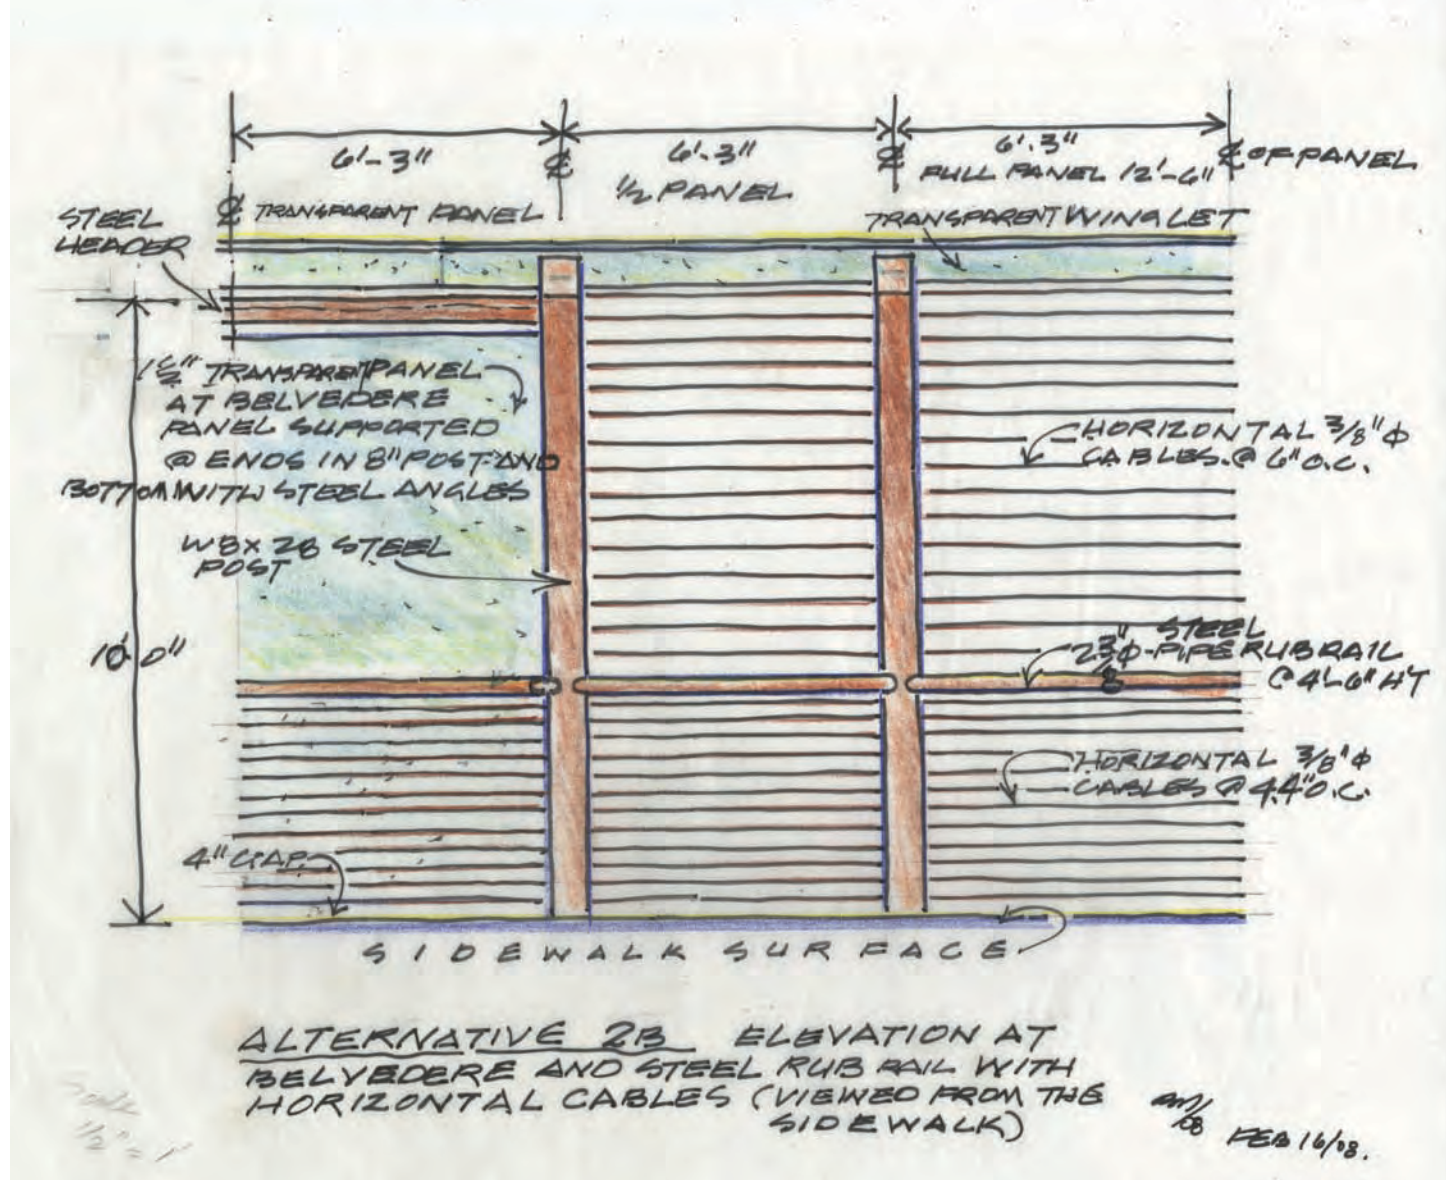 6'-3"
6'-3"
6'-3"
℄
℄
℄ OF PANEL
½ PANEL
FULL PANEL 12'-6"
STEEL
HEADER
℄ TRANSPARENT PANEL
TRANSPARENT WINGLET
1½" TRANSPARENT PANEL
AT BELVEDERE
PANEL SUPPORTED
@ ENDS IN 8" POST AND
BOTTOM WITH STEEL ANGLES
HORIZONTAL 3/8" Φ
CABLES @ 6" O.C.
W8x28 STEEL
POST
10'-0"
STEEL
2 3/8" Φ PIPE RUB RAIL
@ 4'-6" HT
HORIZONTAL 3/8" Φ
CABLES @ 4.4" O.C.
4" GAP
SIDEWALK SURFACE
ALTERNATIVE 2B ELEVATION AT
BELVEDERE AND STEEL RUB RAIL WITH
HORIZONTAL CABLES (VIEWED FROM THE
SIDEWALK)
FEB 16/08.
½" = 1'